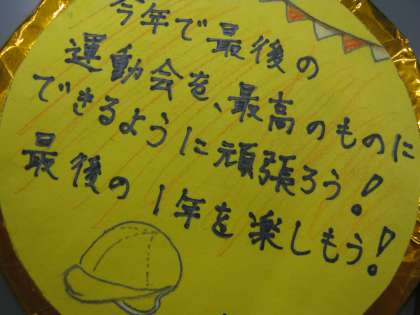 今年で最後の
運動会を、最高のものに
できるように頑張ろう!
最後の1年を楽しもう!